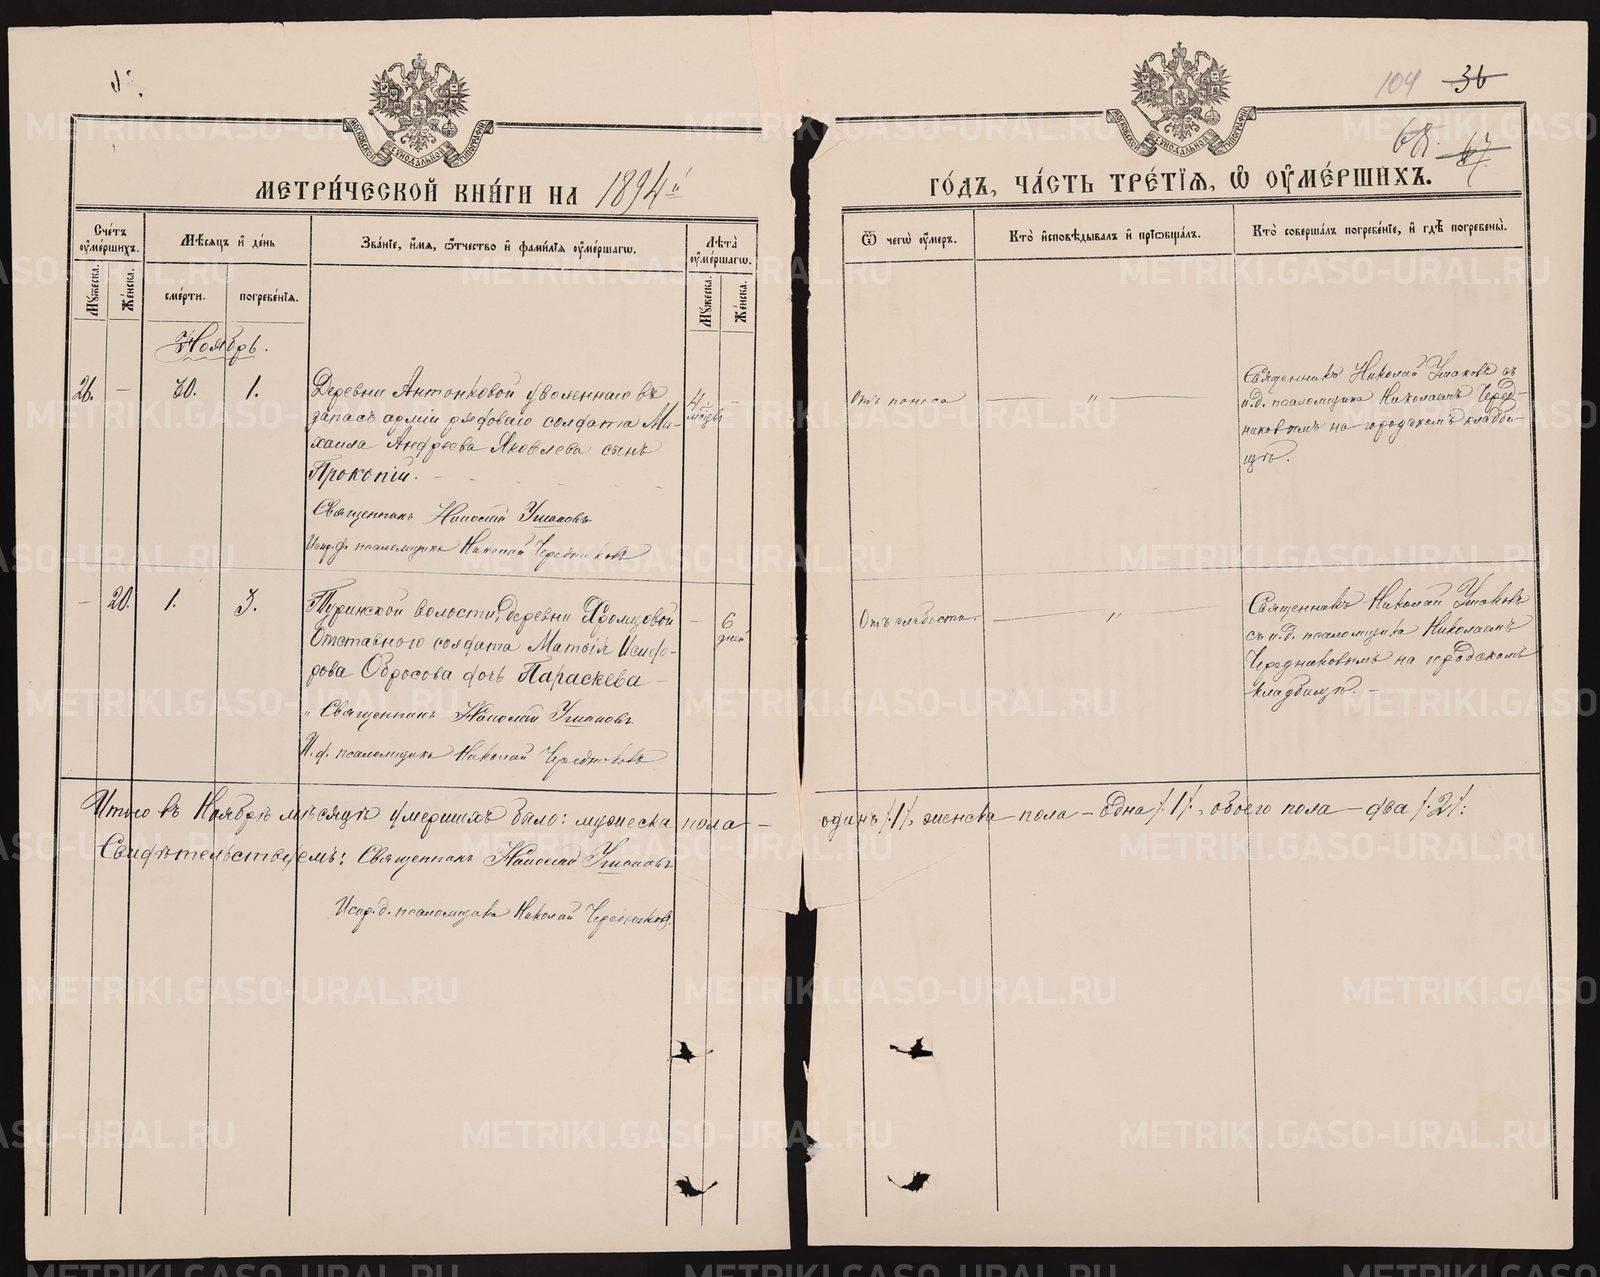 104 36
68. 47
МОСКОВСКОЙ СѴНОДАЛЬНОЙ ТИПОГРАФІИ
МОСКОВСКОЙ СѴНОДАЛЬНОЙ ТИПОГРАФІИ
МЕТРИ́ЧЕСКОЙ КНИ́ГИ НА 1894й
ГО́ДЪ, ЧА́СТЬ ТРЕ́ТІЯ, Ѡ҆ ОУ҆МЕ́РШИХЪ.
Сче́тъ оу҆ме́ршихъ.
Мꙋ́жеска.
Же́нска.
Мѣ́сяцъ и҆ де́нь
сме́рти.
погребе́нїѧ.
Зва́нїе, и҆́мѧ, ѻ҆́тчество и҆ фами́лїѧ оу҆ме́ршагѡ.
Лѣ́та̀ оу҆ме́ршагѡ.
Мꙋ́жеска.
Же́нска.
Ѿ чегѡ̀ оу҆́меръ.
Кто̀ и҆сповѣ́дывалъ и҆ прїѡбща́лъ.
Кто̀ соверша́лъ погребе́нїе, и҆ гдѣ̀ погребены̀.
Ноябрь.
26. — 30. 1.
Деревни Антонковой уволеннаго въ
запасъ арміи рядоваго солдата Ми-
хаила Андреева Яковлева сынъ
Прокопій.
Священникъ Николай Ушаковъ
Испр. д. псаломщика Николай Чередниковъ
4 месяц. —
Отъ поноса — „ —
Священникъ Николай Ушаковъ съ
и.д. псаломщика Николаемъ Черед-
никовымъ на городскомъ кладби-
щѣ.
— 20. 1. 3.
Туринской волости, деревни Фроловой
Отставного солдата Матѳія Исидо-
рова Обросова дочь Параскева —
„ Священникъ Николай Ушаковъ
И. д. псаломщика Николай Чередниковъ
— 6 дней
Отъ слабости. — „ —
Священникъ Николай Ушаковъ
съ и.д. псаломщика Николаемъ
Чередниковымъ на городскомъ
кладбищѣ. —
Итого въ Ноябрѣ мѣсяцѣ умершихъ было: мужеска пола — одинъ /:1/:, женска пола — одна /:1/:, обоего пола — два /:2/:
Свидѣтельствуемъ: Священникъ Николай Ушаковъ
Испр. д. псаломщика Николай Чередниковъ.
METRIKI.GASO-URAL.RU